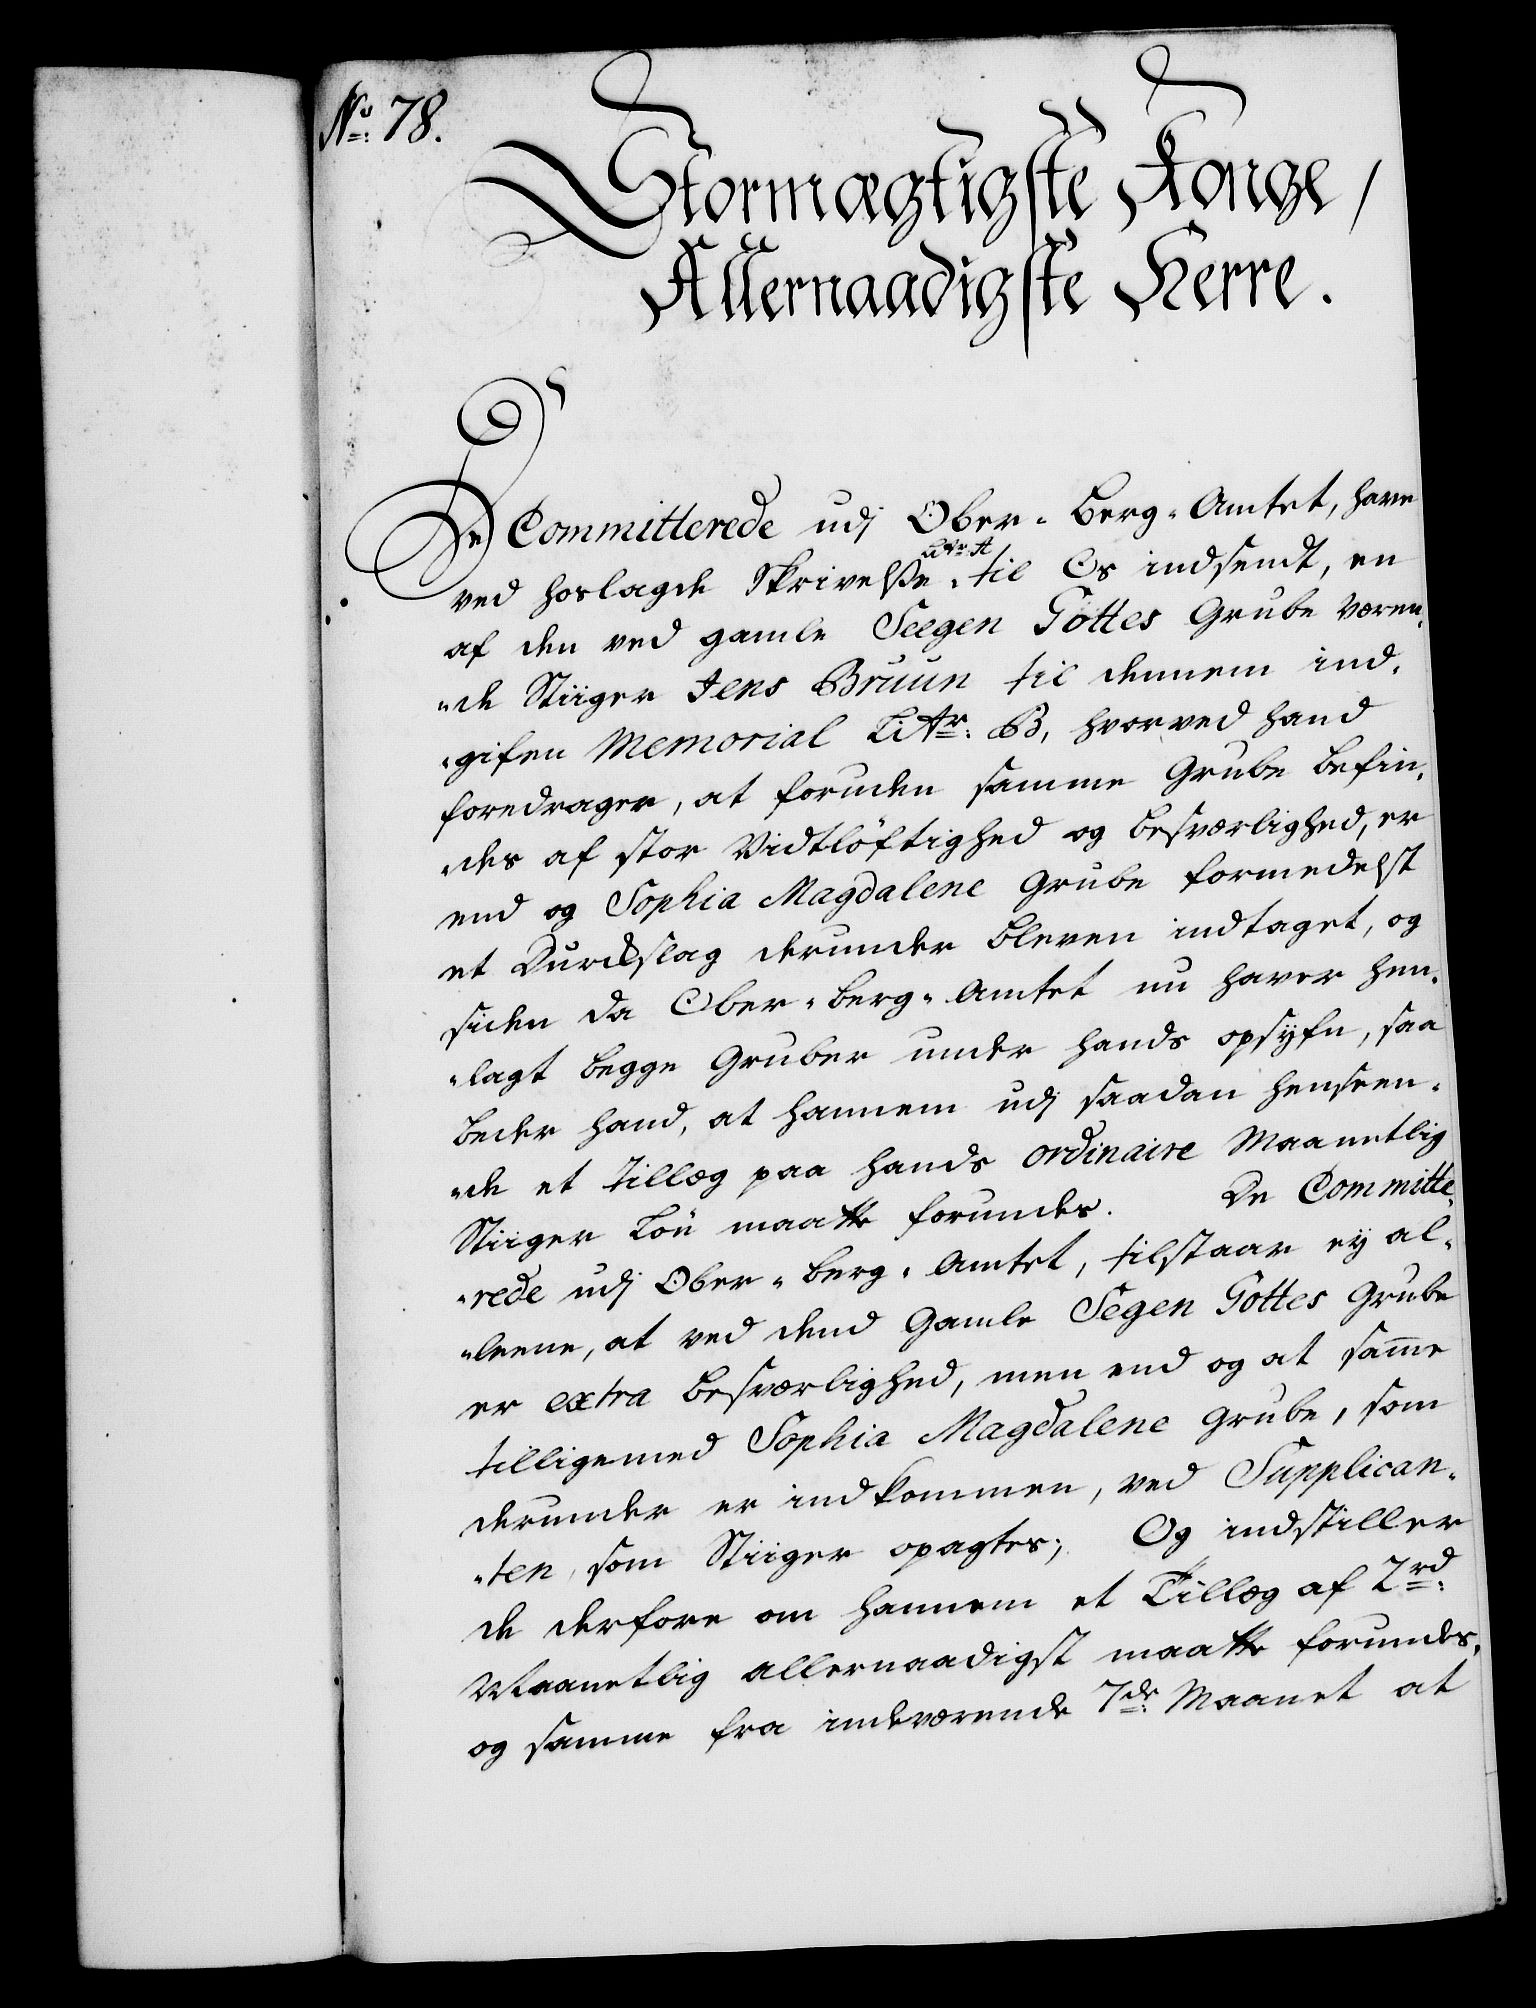 No: 78.
Stormægtigste Konge,
Allernaadigste Herre.
De Committerede udj Ober-Berg-Amtet, have
Litr: A
ved hoslagde Skrivelße til Os indsendt, en
af den ved gamle Seegen Gottes Grube væren-
-de Stiiger Jens Bruun til dennem ind-
-gifen Memorial Litr: B, hvorved hand
foredrager, at foruden samme Grube befin-
-des af stor Vidtløftighed og besværlighed, er
end og Sophia Magdalene Grube formedelst
et Durchslag derunder bleven indtaget, og
siden da Ober-Berg-Amtet nu haver hen-
-lagt begge Gruber under hands opsyfn, saa
beder hand, at hannem udj saadan henseen-
-de et tillæg paa hands ordinaire Maanetlig
Stiiger Løn maatte forundes. De Committe-
-rede udj Ober-Berg-Amtet, tilstaar ey al-
-leene, at ved dend Gamle Segen Gottes Grube
er extra besværlighed, men end og at samme
tilligemed Sophia Magdalene Grube, som
derunder er indkommen, ved Supplican-
-ten, som Stiiger opagtes; Og indstiller
de derfore om hannem et Tillæg af 2 rd:
Maanetlig allernaadigst maatte forundes,
og samme fra indeværende 7de: Maanet at